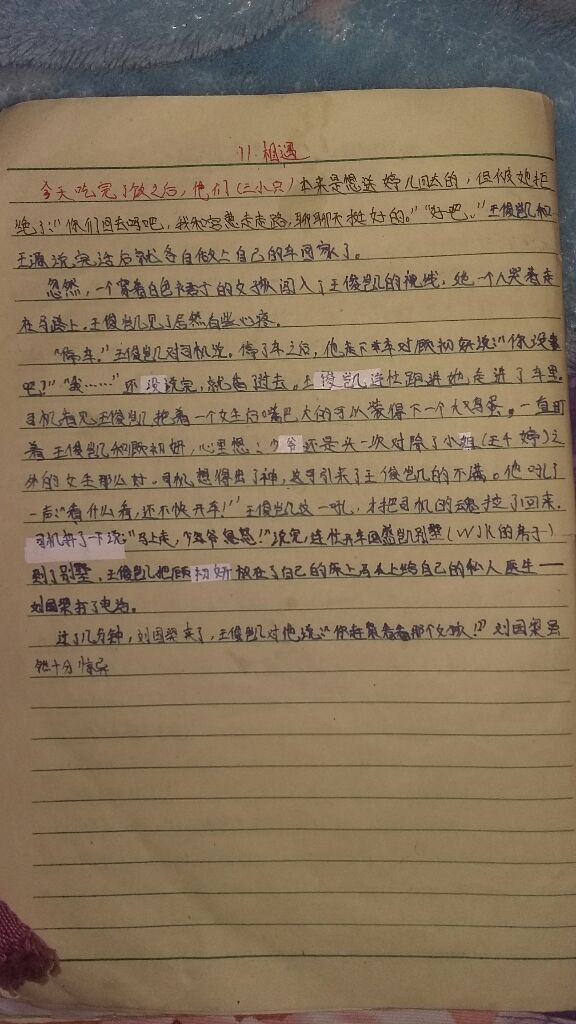 11.相遇
今天吃完了饭之后，他们（三小只）本来是想送婷儿回去的，但被她拒
绝了：“你们回去吧，我和走走路，聊聊天挺好的。”“好吧。”王俊凯和
王源说完话后就各自做上自己的车回家了。
忽然，一个穿着白色裙子的女孩闯入了王俊凯的视线，她一个人哭着走
在马路上，王俊凯见了居然有些心疼。
“停车。”王俊凯对司机说。停了车之后，他走下车对顾初妍说：“你没事
吧？”“我……”还没说完，就昏过去。王俊凯连忙跑进她，走进了车里。
司机看见王俊凯抱着一个女生后嘴巴大的可以装得下一个大鸡蛋。一直盯
着王俊凯和顾初妍，心里想：少爷还是头一次对除了小姐（王千婷）之
外的女生那么好。司机想得出了神，这可引来了王俊凯的不满。他吼了
一声：“看什么看，还不快开车！”王俊凯这一吼，才把司机的魂拉了回来，
司机抖了一下说：“马上走，少爷息怒！”说完，连忙开车回凯别墅（WJK的房子）
到了别墅，王俊凯把顾初妍放在了自己的床上马上给自己的私人医生——
刘国梁打了电话。
过了几分钟，刘国梁来了，王俊凯对他说：“你赶紧看看那个女孩！”刘国梁虽
然十分惊异